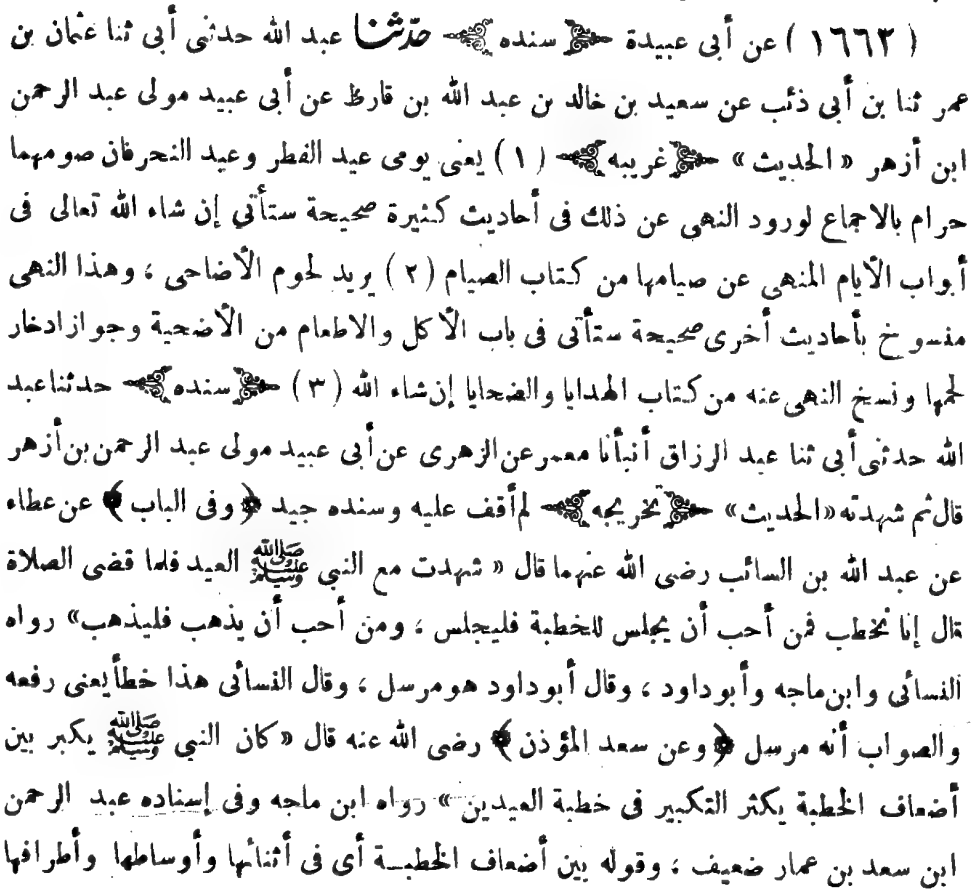 ( ١٦٦٣ ) عن أبى عبيدة ﴿ سنده ﴾ حدّثنا عبد الله حدثنى أبى ثنا عثمان بن
عمر ثنا بن أبى ذئب عن سعيد بن خالد بن عبد الله بن قارظ عن أبى عبيد مولى عبد الرحمن
ابن أزهر « الحديث » ﴿ غريبه ﴾ ( ١ ) يعنى يومى عيد الفطر وعيد النحر فان صومهما
حرام بالاجماع لورود النهى عن ذلك فى أحاديث كثيرة صحيحة ستأتى إن شاء الله تعالى فى
أبواب الأيام المنهى عن صيامها من كتاب الصيام ( ٢ ) يريد لحوم الأضاحى ؛ وهذا النهى
منسوخ بأحاديث أخرى صحيحة ستأتى فى باب الأكل والاطعام من الأضحية وجواز ادخار
لحمها ونسخ النهى عنه من كتاب الهدايا والضحايا إن شاء الله ( ٣ ) ﴿ سنده ﴾ حدثنا عبد
الله حدثنى أبى ثنا عبد الرزاق أنبأنا معمر عن الزهرى عن أبى عبيد مولى عبد الرحمن بن أزهر
قال ثم شهدته «الحديث» ﴿ تخريجه ﴾ لم أقف عليه وسنده جيد ﴿ وفى الباب ﴾ عن عطاء
عن عبد الله بن السائب رضى الله عنهما قال « شهدت مع النبى ﷺ العيد فلما قضى الصلاة
قال إنا نخطب فمن أحب أن يجلس للخطبة فليجلس ؛ ومن أحب أن يذهب فليذهب» رواه
النسائى وابن ماجه وأبو داود ؛ وقال أبو داود هو مرسل ؛ وقال النسائى هذا خطأ يعنى رفعه
والصواب أنه مرسل ﴿ وعن سعد المؤذن ﴾ رضى الله عنه قال «كان النبى ﷺ يكبر بين
أضعاف الخطبة يكثر التكبير فى خطبة العيدين » رواه ابن ماجه وفى إسناده عبد الرحمن
ابن سعد بن عمار ضعيف ؛ وقوله بين أضعاف الخطبة أى فى أثنائها وأوساطها وأطرافها